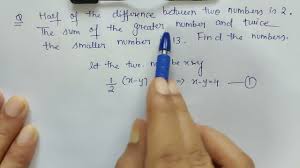 Q Half of the difference between two numbers is 2.
The sum of the greater number and twice
the smaller number 13. Find the numbers.
let the two no be x & y
1/2 (x-y) ⇒ x-y=4 — ①